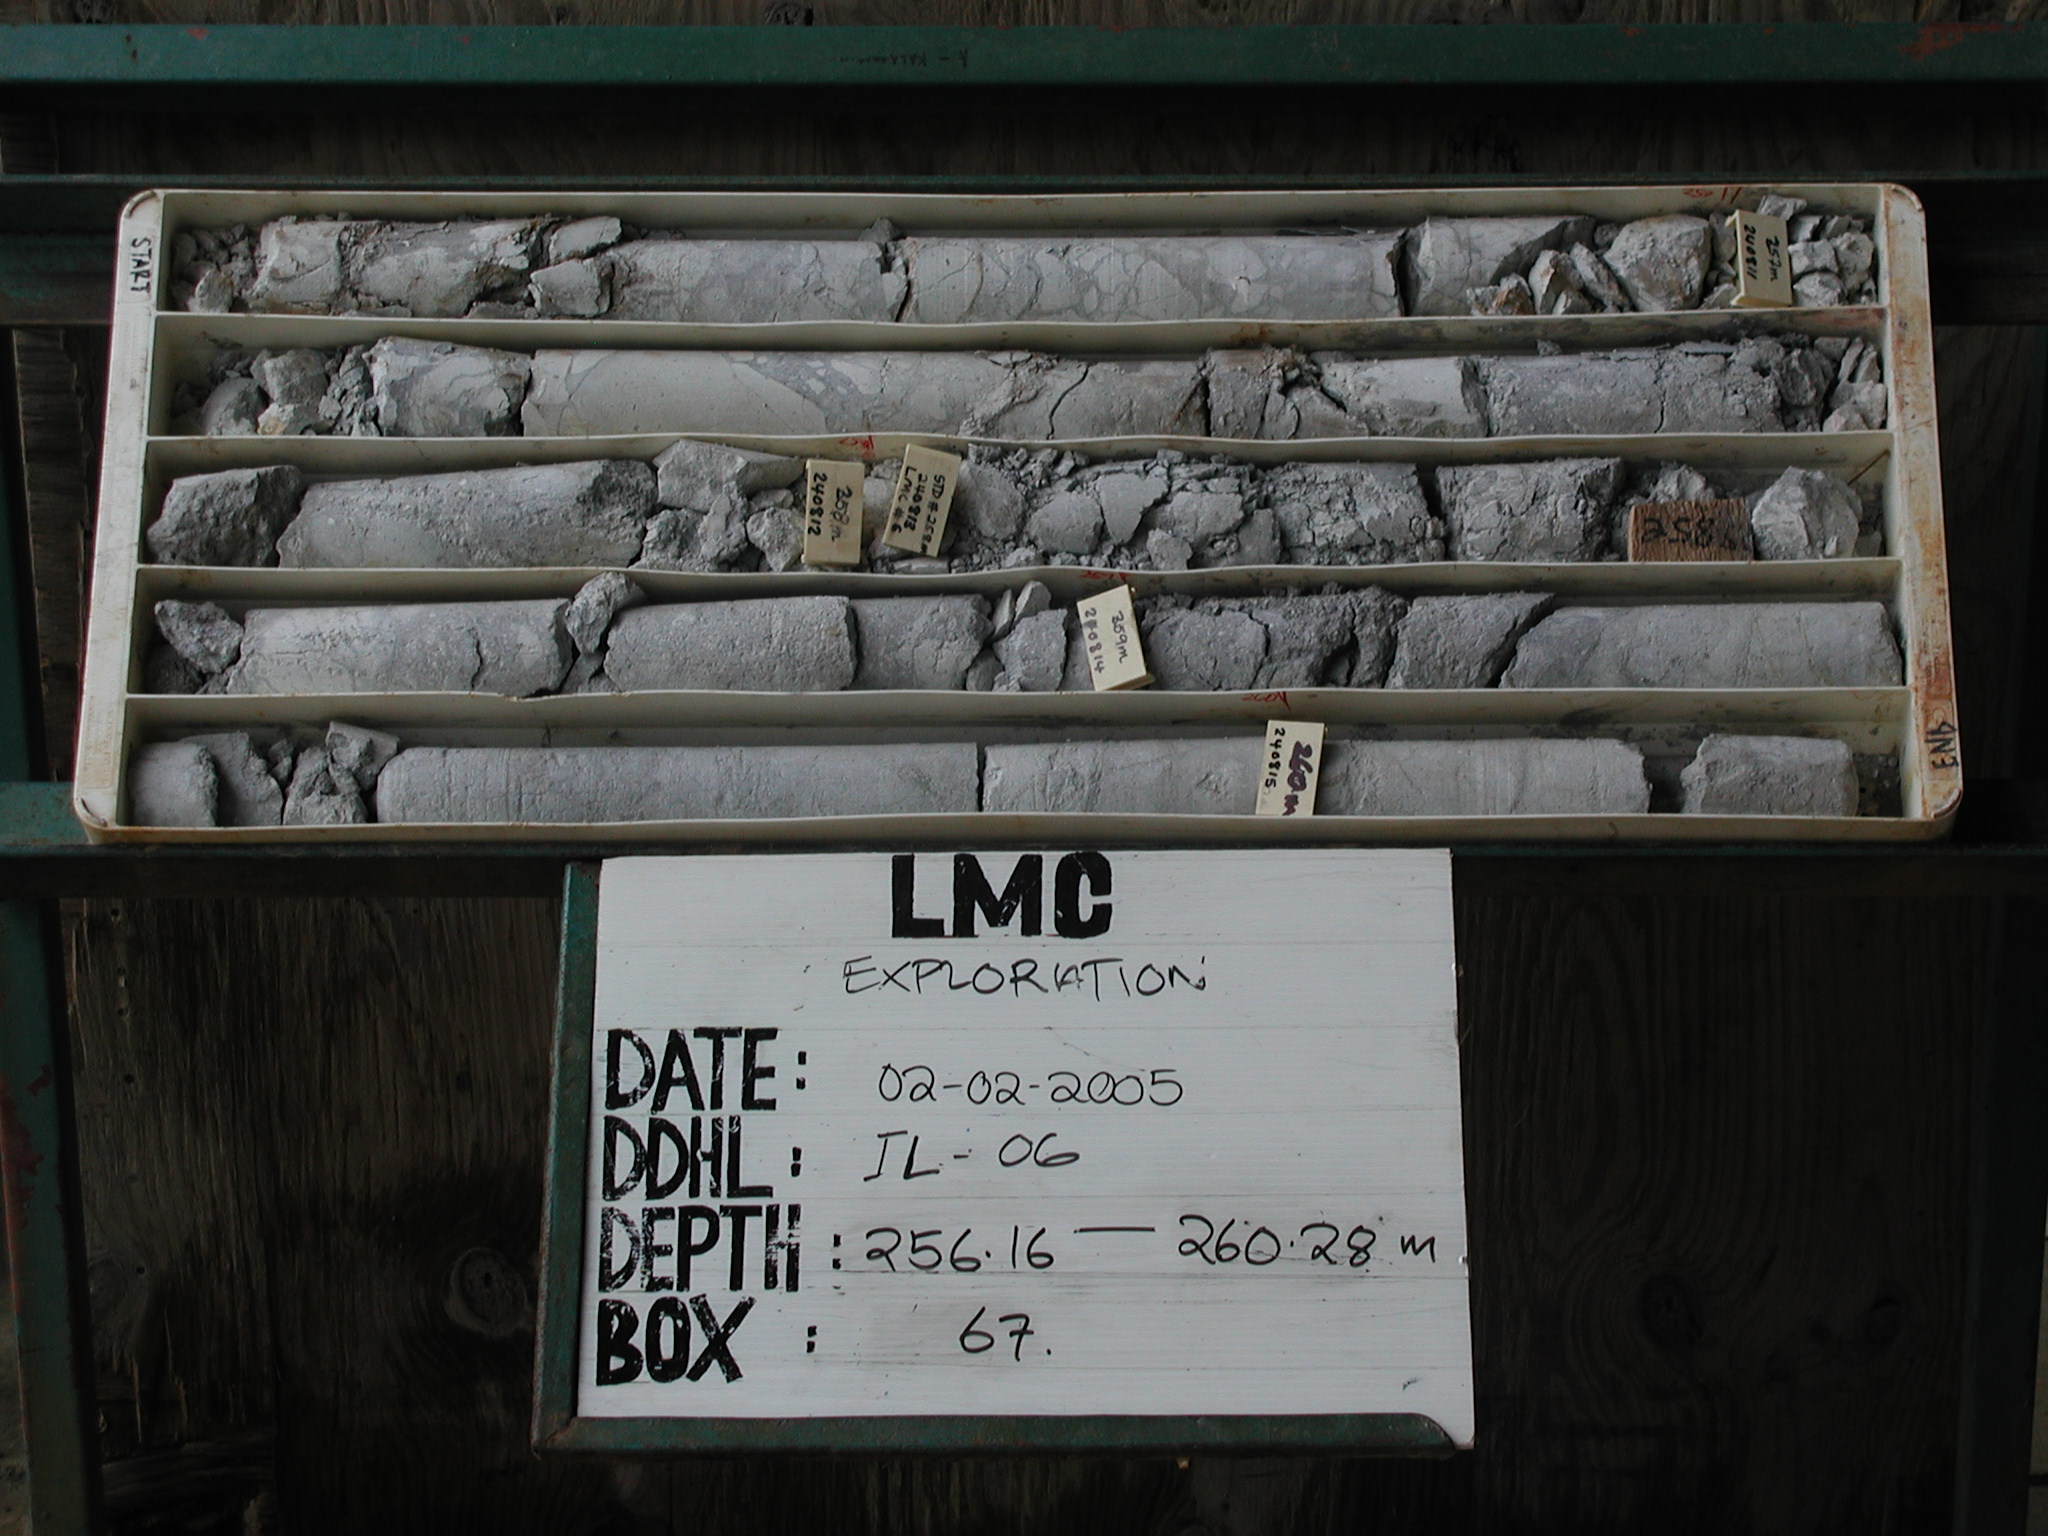 START
257m
240811
258m
240812
STD # 258m
240813
LMC # 6
258.
259m
240814
260m
240815
END
LMC
EXPLORATION
DATE: 02-02-2005
DDHL: IL-06
DEPTH: 256.16 — 260.28 m
BOX : 67.